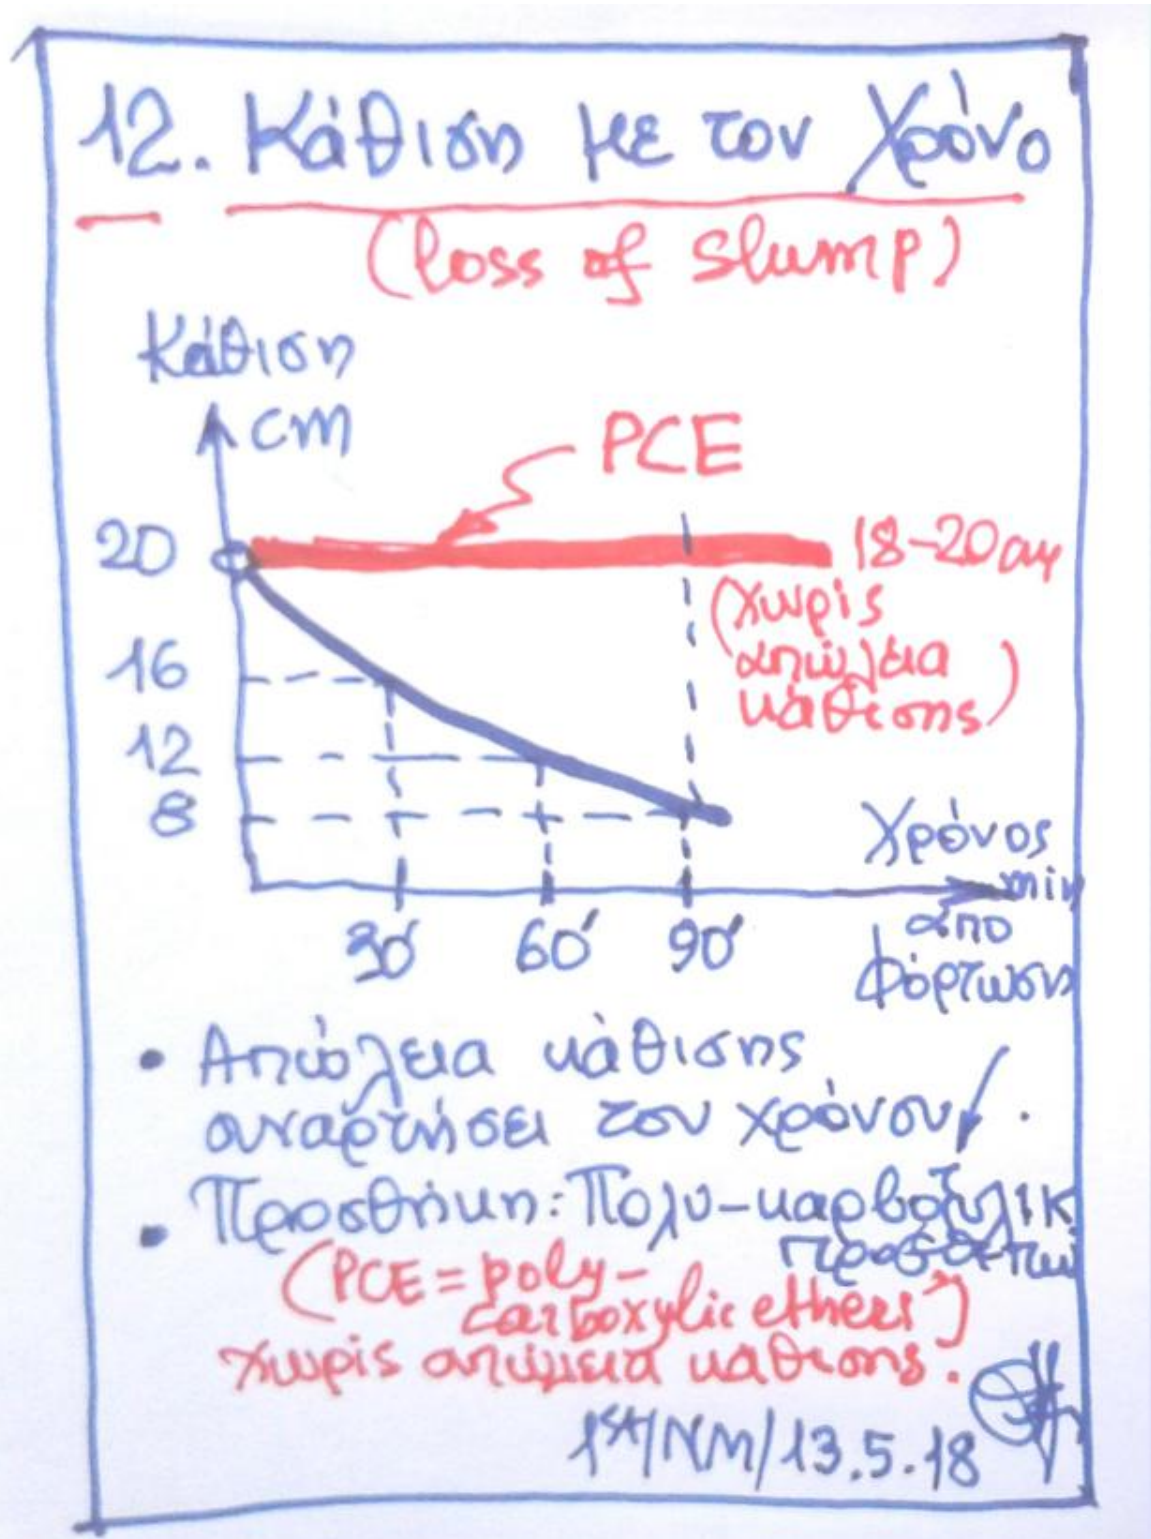 12. Κάθιση με τον Χρόνο
(loss of slump)
Κάθιση
cm
PCE
20
18-20 cm
(χωρίς
απώλεια
κάθισης)
16
12
8
Χρόνος
min
από
φόρτωση
30' 60' 90'
• Απώλεια κάθισης
συναρτήσει του χρόνου.
• Προσθήκη: Πολυ-καρβοξυλικ
(PCE = poly-
carboxylic ethers)
χωρίς απώλεια κάθισης.
1st/NM/13.5.18